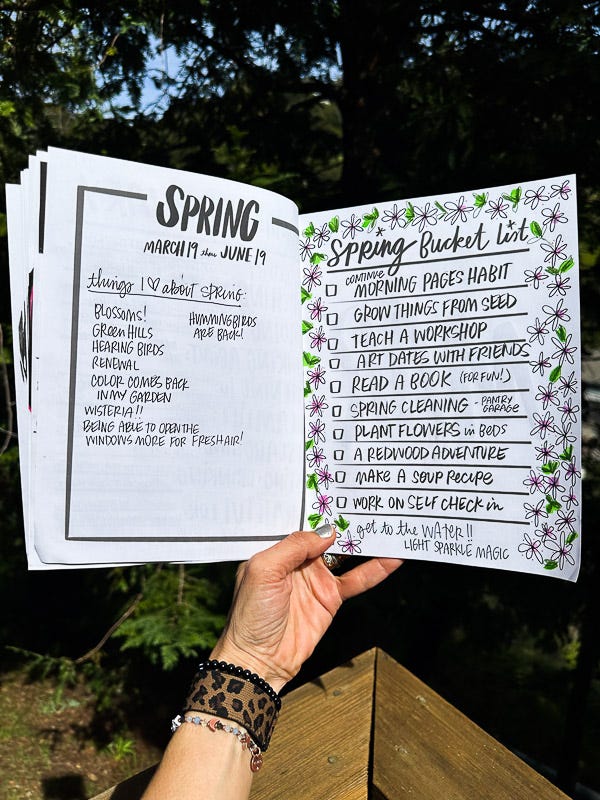 SPRING
MARCH 19 thru JUNE 19
things I ♡ about spring:
BLOSSOMS!
GREEN HILLS
HEARING BIRDS
RENEWAL
COLOR COMES BACK
IN MY GARDEN
WISTERIA!!
BEING ABLE TO OPEN THE
WINDOWS MORE FOR FRESH AIR!
HUMMINGBIRDS
ARE BACK!
Spring Bucket list
CONTINUE
MORNING PAGES HABIT
GROW THINGS FROM SEED
TEACH A WORKSHOP
ART DATES WITH FRIENDS
READ A BOOK (FOR FUN!)
SPRING CLEANING - PANTRY
GARAGE
PLANT FLOWERS in BEDS
A REDWOOD ADVENTURE
MAKE A SOUP RECIPE
WORK ON SELF CHECK in
get to the WATER!!
LIGHT SPARKLE MAGIC